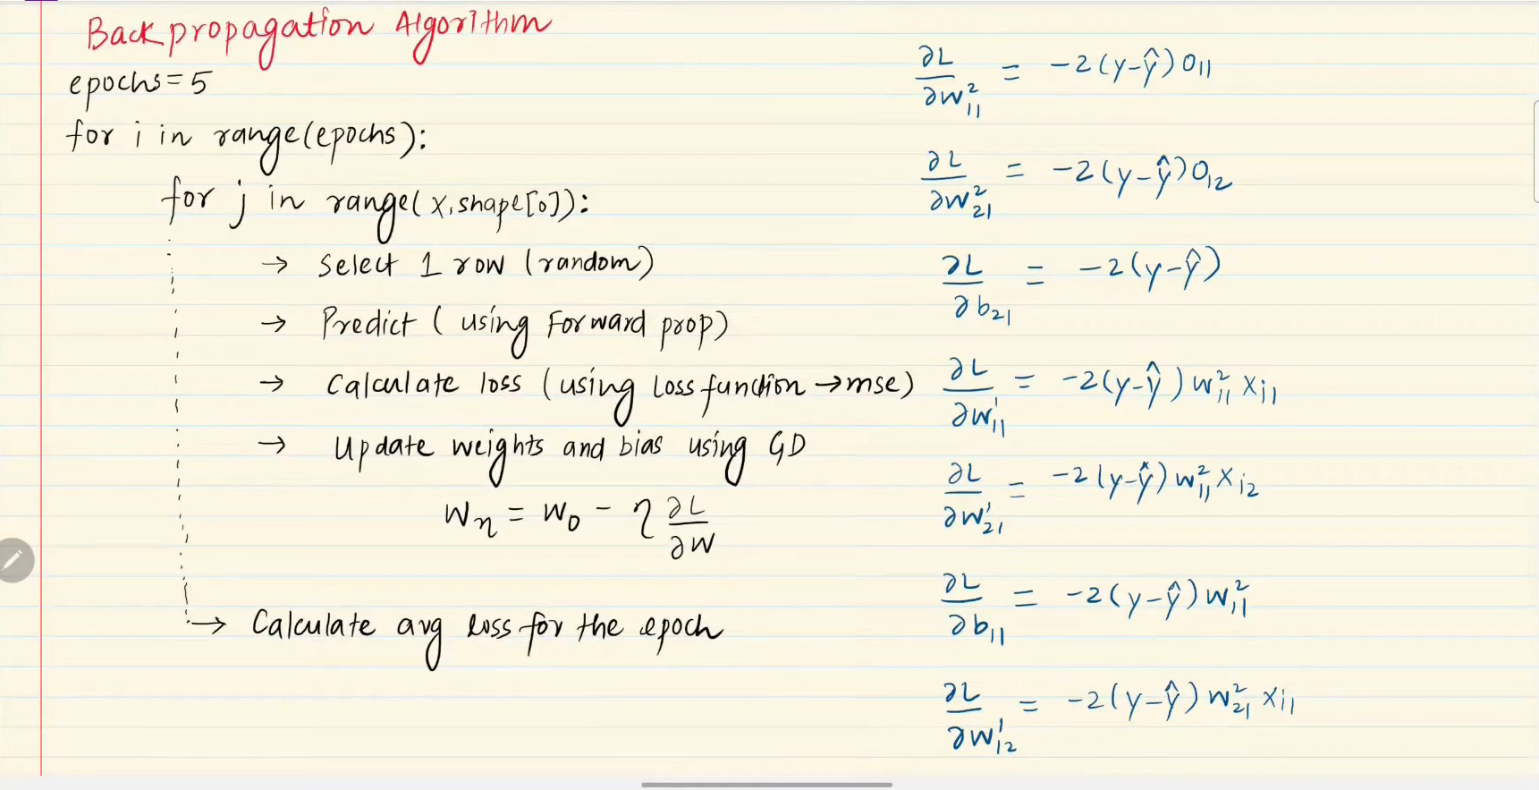 Backpropagation Algorithm
epochs = 5
for i in range(epochs):
for j in range(X.shape[0]):
→ Select 1 row (random)
→ Predict (using Forward prop)
→ Calculate loss (using Loss function → mse)
→ Update weights and bias using GD
Wₙ = W₀ - η ∂L/∂W
→ Calculate avg loss for the epoch
∂L/∂W²₁₁ = -2(y-ŷ)O₁₁
∂L/∂W²₂₁ = -2(y-ŷ)O₁₂
∂L/∂b₂₁ = -2(y-ŷ)
∂L/∂W¹₁₁ = -2(y-ŷ)W²₁₁ Xᵢ₁
∂L/∂W¹₂₁ = -2(y-ŷ)W²₁₁ Xᵢ₂
∂L/∂b₁₁ = -2(y-ŷ)W²₁₁
∂L/∂W¹₁₂ = -2(y-ŷ)W²₂₁ Xᵢ₁